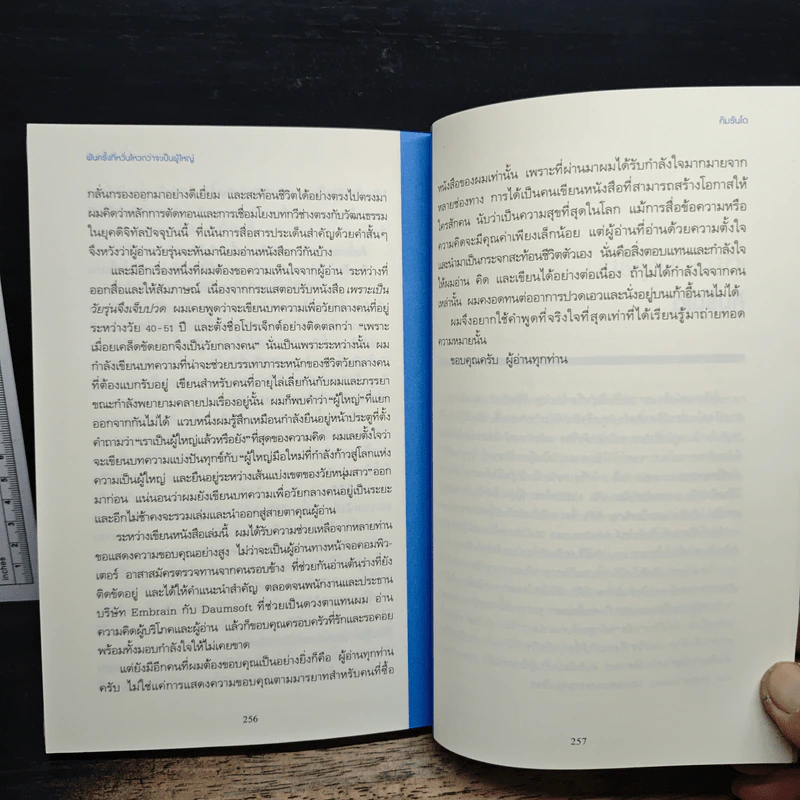 ฝันครั้งที่หวั่นไหวกว่าจะเป็นผู้ใหญ่
กลั่นกรองออกมาอย่างดีเยี่ยม และสะท้อนชีวิตได้อย่างตรงไปตรงมา
ผมคิดว่าหลักการตัดทอนและการเชื่อมโยงบทกวีช่างตรงกับวัฒนธรรม
ในยุคดิจิทัลปัจจุบันนี้ ที่เน้นการสื่อสารประเด็นสำคัญด้วยคำสั้นๆ
จึงหวังว่าผู้อ่านวัยรุ่นจะหันมานิยมอ่านหนังสือกวีกันบ้าง
และมีอีกเรื่องหนึ่งที่ผมต้องขอความเห็นใจจากผู้อ่าน ระหว่างที่
ออกสื่อและให้สัมภาษณ์ เนื่องจากกระแสตอบรับหนังสือ เพราะเป็น
วัยรุ่นจึงเจ็บปวด ผมเคยพูดว่าจะเขียนบทความเพื่อวัยกลางคนที่อยู่
ระหว่างวัย 40-51 ปี และตั้งชื่อโปรเจ็กต์อย่างติดตลกว่า "เพราะ
เมื่อยเคล็ดขัดยอกจึงเป็นวัยกลางคน" นั่นเป็นเพราะระหว่างนั้น ผม
กำลังเขียนบทความที่น่าจะช่วยบรรเทาภาระหนักของชีวิตวัยกลางคน
ที่ต้องแบกรับอยู่ เขียนสำหรับคนที่อายุไล่เลี่ยกันกับผมและภรรยา
ขณะกำลังพยายามคลายปมเรื่องอยู่นั้น ผมก็พบคำว่า "ผู้ใหญ่" ที่แยก
ออกจากกันไม่ได้ แวบหนึ่งผมรู้สึกเหมือนกำลังยืนอยู่หน้าประตูที่ตั้ง
คำถามว่า "เราเป็นผู้ใหญ่แล้วหรือยัง" ที่สุดของความคิด ผมเลยตั้งใจว่า
จะเขียนบทความแบ่งปันทุกข์กับ "ผู้ใหญ่มือใหม่ที่กำลังก้าวสู่โลกแห่ง
ความเป็นผู้ใหญ่ และยืนอยู่ระหว่างเส้นแบ่งเขตของวัยหนุ่มสาว" ออก
มาก่อน แน่นอนว่าผมยังเขียนบทความเพื่อวัยกลางคนอยู่เป็นระยะ
และอีกไม่ช้าคงจะรวมเล่มและนำออกสู่สายตาคุณผู้อ่าน
ระหว่างเขียนหนังสือเล่มนี้ ผมได้รับความช่วยเหลือจากหลายท่าน
ขอแสดงความขอบคุณอย่างสูง ไม่ว่าจะเป็นผู้อ่านทางหน้าจอคอมพิว-
เตอร์ อาสาสมัครตรวจทานจากคนรอบข้าง ที่ช่วยกันอ่านต้นร่างที่ยัง
ติดขัดอยู่ และได้ให้คำแนะนำสำคัญ ตลอดจนพนักงานและประธาน
บริษัท Embrain กับ Daumsoft ที่ช่วยเป็นดวงตาแทนผม อ่าน
ความคิดผู้บริโภคและผู้อ่าน แล้วก็ขอบคุณครอบครัวที่รักและรอคอย
พร้อมทั้งมอบกำลังใจให้ไม่เคยขาด
แต่ยังมีอีกคนที่ผมต้องขอบคุณเป็นอย่างยิ่งก็คือ ผู้อ่านทุกท่าน
ครับ ไม่ใช่แค่การแสดงความขอบคุณตามมารยาทสำหรับคนที่ซื้อ
256
คิมรันโด
หนังสือของผมเท่านั้น เพราะที่ผ่านมาผมได้รับกำลังใจมากมายจาก
หลายช่องทาง การได้เป็นคนเขียนหนังสือที่สามารถสร้างโอกาสให้
ใครสักคน นับว่าเป็นความสุขที่สุดในโลก แม้การสื่อข้อความหรือ
ความคิดจะมีคุณค่าเพียงเล็กน้อย แต่ผู้อ่านที่อ่านด้วยความตั้งใจ
และนำมาเป็นกระจกสะท้อนชีวิตตัวเอง นั่นคือสิ่งตอบแทนและกำลังใจ
ให้ผมอ่าน คิด และเขียนได้อย่างต่อเนื่อง ถ้าไม่ได้กำลังใจจากคน
เหล่านั้น ผมคงอดทนต่ออาการปวดเอวและนั่งอยู่บนเก้าอี้นานไม่ได้
ผมจึงอยากใช้คำพูดที่จริงใจที่สุดเท่าที่ได้เรียนรู้มาถ่ายทอด
ความหมายนั้น
ขอบคุณครับ ผู้อ่านทุกท่าน
257
inches
1
2
3
4